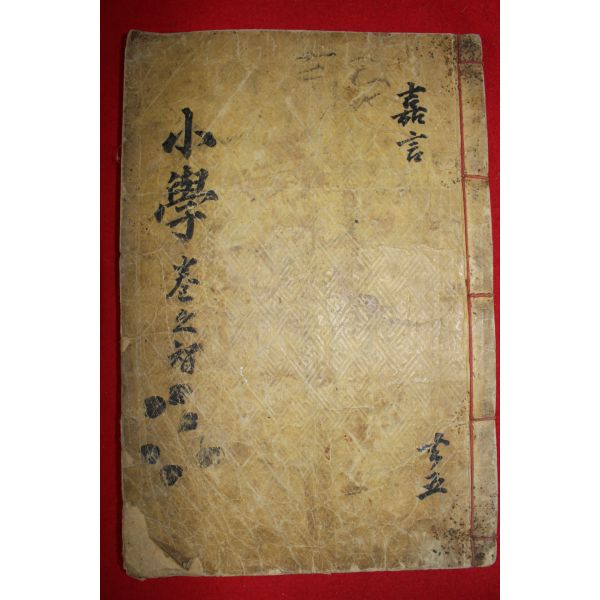 嘉言
共五
小學 卷之智